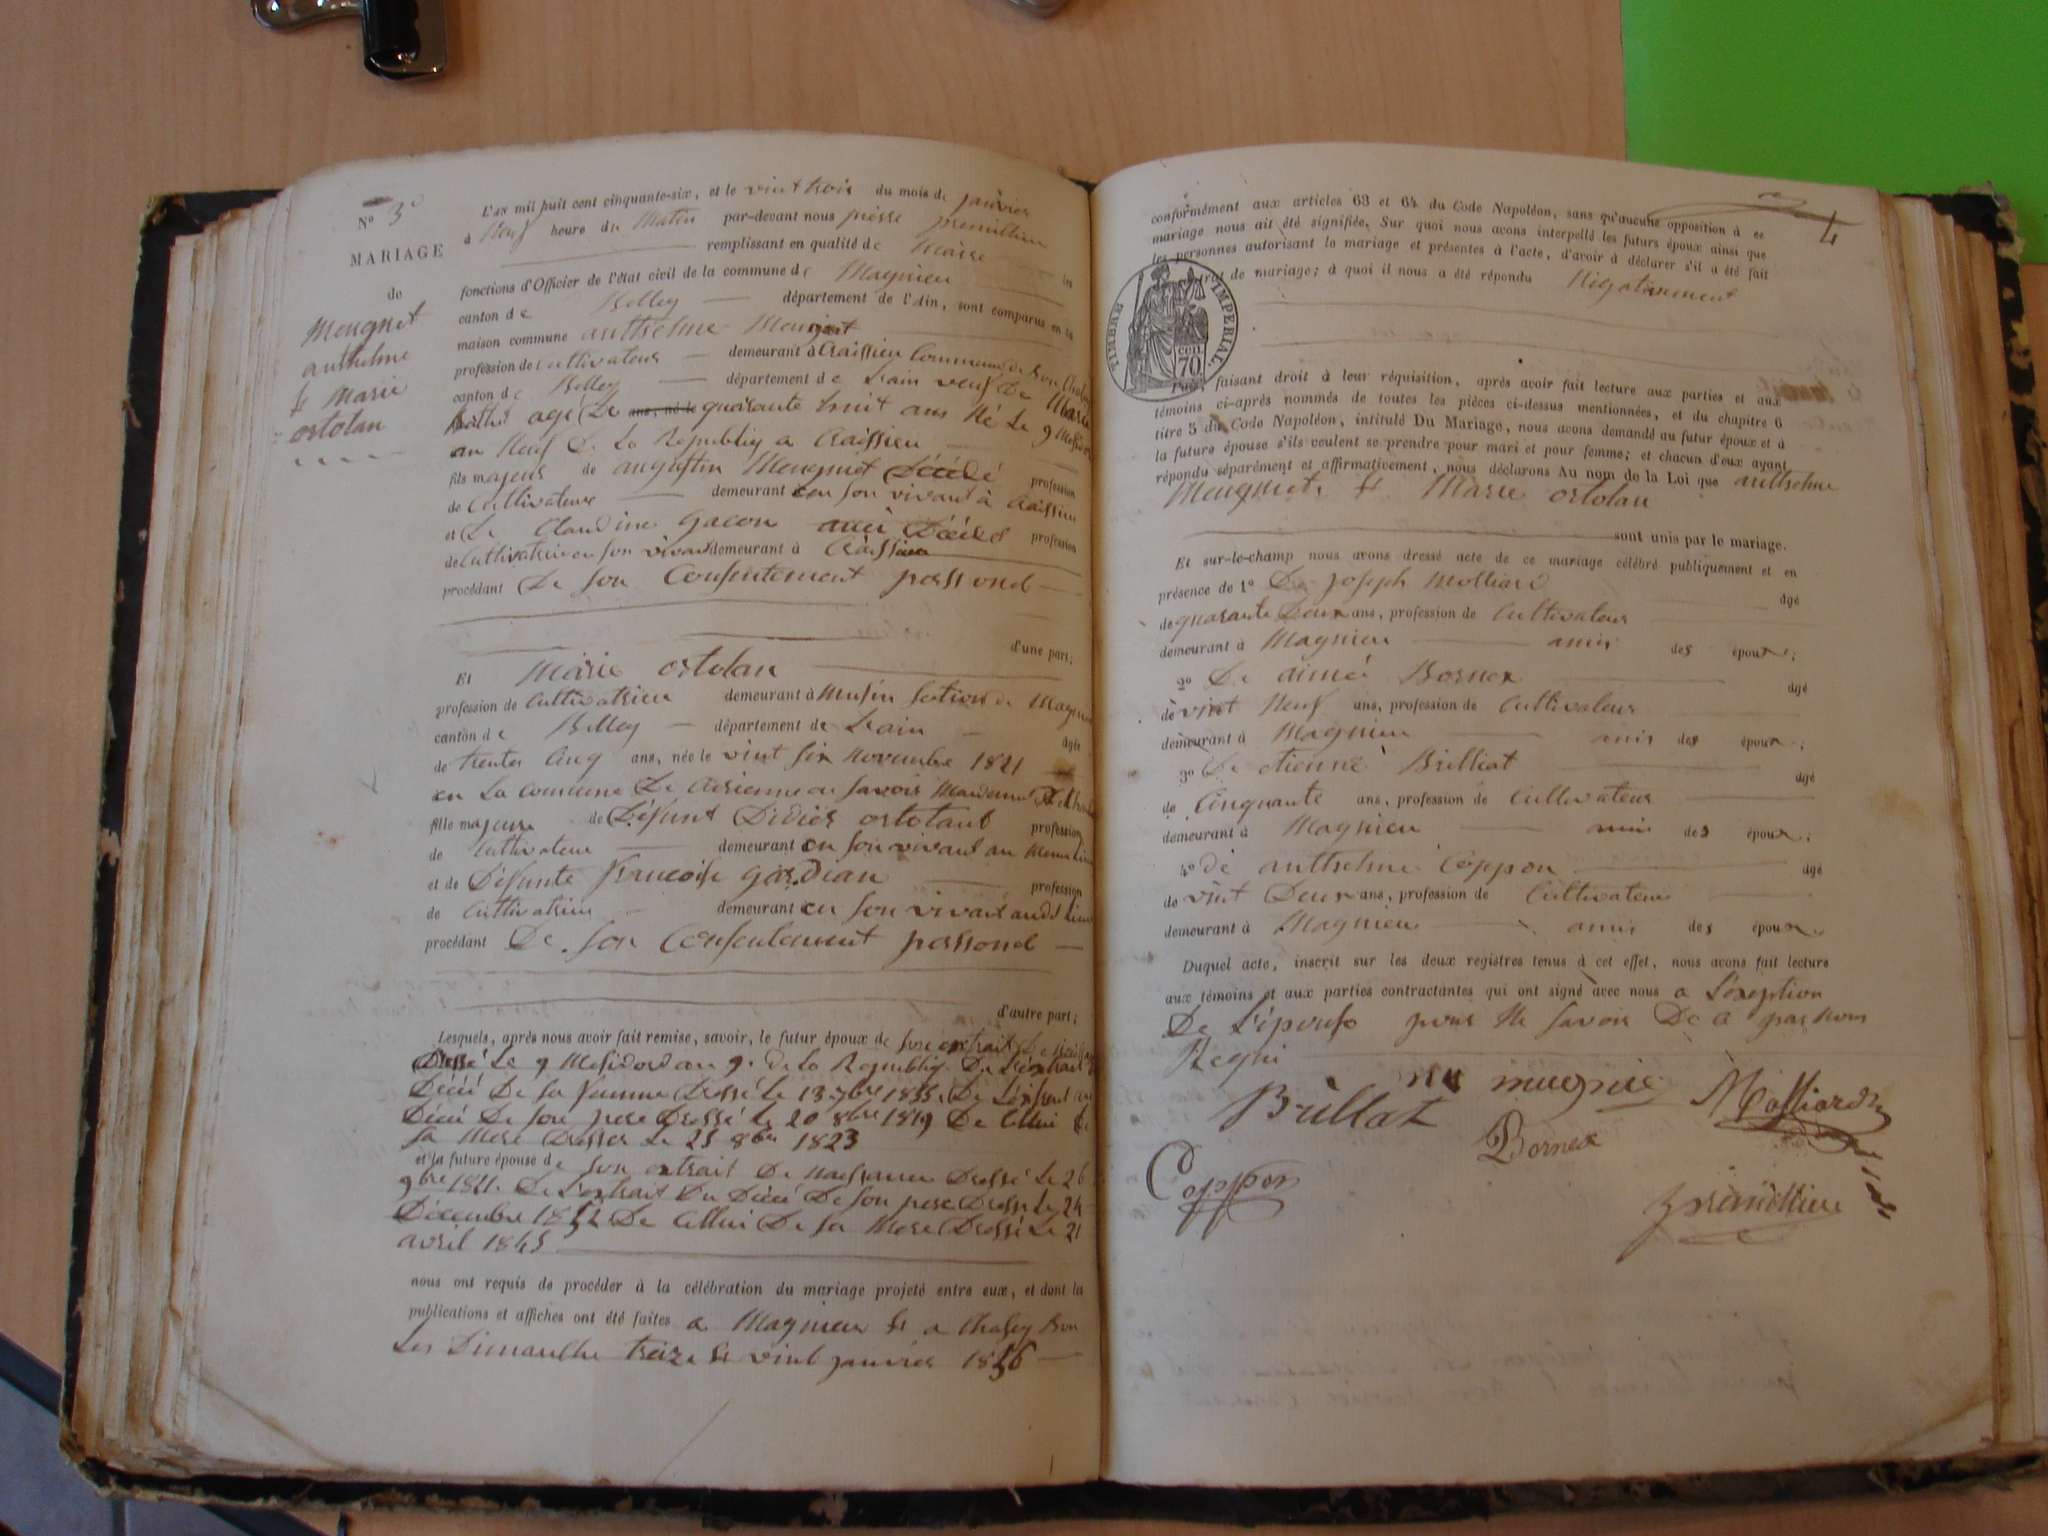 N° 3
MARIAGE
de
Meugnet
anthelme
et Marie
ortolan
L'an mil huit cent cinquante-six, et le vint trois du mois de janvier
à Neuf heure du Matin par-devant nous pierre premillieu
remplissant en qualité de Maire les
fonctions d'Officier de l'état civil de la commune de Magnieu
canton de Belley département de l'Ain, sont comparus en la
maison commune anthelme Meugnet
profession de Cultivateur demeurant à Craissieu Commune de
canton de Belley département de Lain veuf de Marie
agé De ans, né le quarante huit ans Né Le 9 Messidor
an Neuf De La Republiq a Craissieu
fils majeur de augustin Meugniet Décédé profession
de Cultivateur demeurant en son vivant à Craissieu
et De Claudine Gacon aussi Décédé profession
de Cultivatrice en son vivant demeurant à Craissieu
procédant De son Consentement personel
d'une part;
Et Marie ortolan
profession de Cultivatrice demeurant à Musin Section de Magnieu
canton de Belley département de Lain âgée
de trente Cinq ans, née le vint six novembre 1821
en La commune De
fille majeure de Défunt Didier ortolant profession
de Cultivateur demeurant en son vivant au
et de Défunte francoise gardian profession
de Cultivatrice demeurant en son vivant audit Lieu
procédant De son Consentement personel
d'autre part;
Lesquels, après nous avoir fait remise, savoir, le futur époux de son extrait De
Dressé Le 9 Messidor an 9. de La Republiq. De L'extrait
Décé De sa femme Dressé Le 13 7bre 1855. De L'extrait
Décé De son pere Dressé Le 20 8bre 1819 De Cellui de
sa Mere Dresser Le 25 8bre 1823
et la future épouse de son extrait De naissance Dressé Le 26
9bre 1821. De L'extrait Du Décé De son pere Dressé Le 24
Decembre 1852 De Cellui De sa Mere Dressé Le 21
avril 1845
nous ont requis de procéder à la célébration du mariage projeté entre eux, et dont les
publications et affiches ont été faites a Magnieu et a Chasey Bon
Les Dimanche treize et vint janvier 1856
4
conformément aux articles 63 et 64 du Code Napoléon, sans qu'aucune opposition à ce
mariage nous ait été signifiée. Sur quoi nous avons interpellé les futurs époux ainsi que
les personnes autorisant le mariage et présentes à l'acte, d'avoir à déclarer s'il a été fait
trat de mariage; à quoi il nous a été répondu Négativement
TIMBRE IMPÉRIAL.
cen.
70.
Puis, faisant droit à leur réquisition, après avoir fait lecture aux parties et aux
témoins ci-après nommés de toutes les pièces ci-dessus mentionnées, et du chapitre 6
titre 5 du Code Napoléon, intitulé Du Mariage, nous avons demandé au futur époux et à
la future épouse s'ils veulent se prendre pour mari et pour femme; et chacun d'eux ayant
répondu séparément et affirmativement, nous déclarons Au nom de la Loi que anthelme
Meugniet, et Marie ortolan
sont unis par le mariage.
Et sur-le-champ nous avons dressé acte de ce mariage célébré publiquement et en
présence de 1° De joseph Molliard âgé
de quarante Deux ans, profession de Cultivateur
demeurant à Magnieu amis des époux;
2° De aimé Bornex âgé
de vint Neuf ans, profession de Cultivateur
demeurant à Magnieu amis des époux;
3° De etienne Brilliat âgé
de Cinquante ans, profession de Cultivateur
demeurant à Magnieu amis des époux;
4° de anthelme Coppon âgé
de vint Deux ans, profession de Cultivateur
demeurant à Magnieu amis des époux.
Duquel acte, inscrit sur les deux registres tenus à cet effet, nous avons fait lecture
aux témoins et aux parties contractantes qui ont signé avec nous a L'exeption
De L'épouse pour Ne savoir De a par Nous
Requi
mugnié Molliard
Brillat
Bornex
Coppon
premillieu